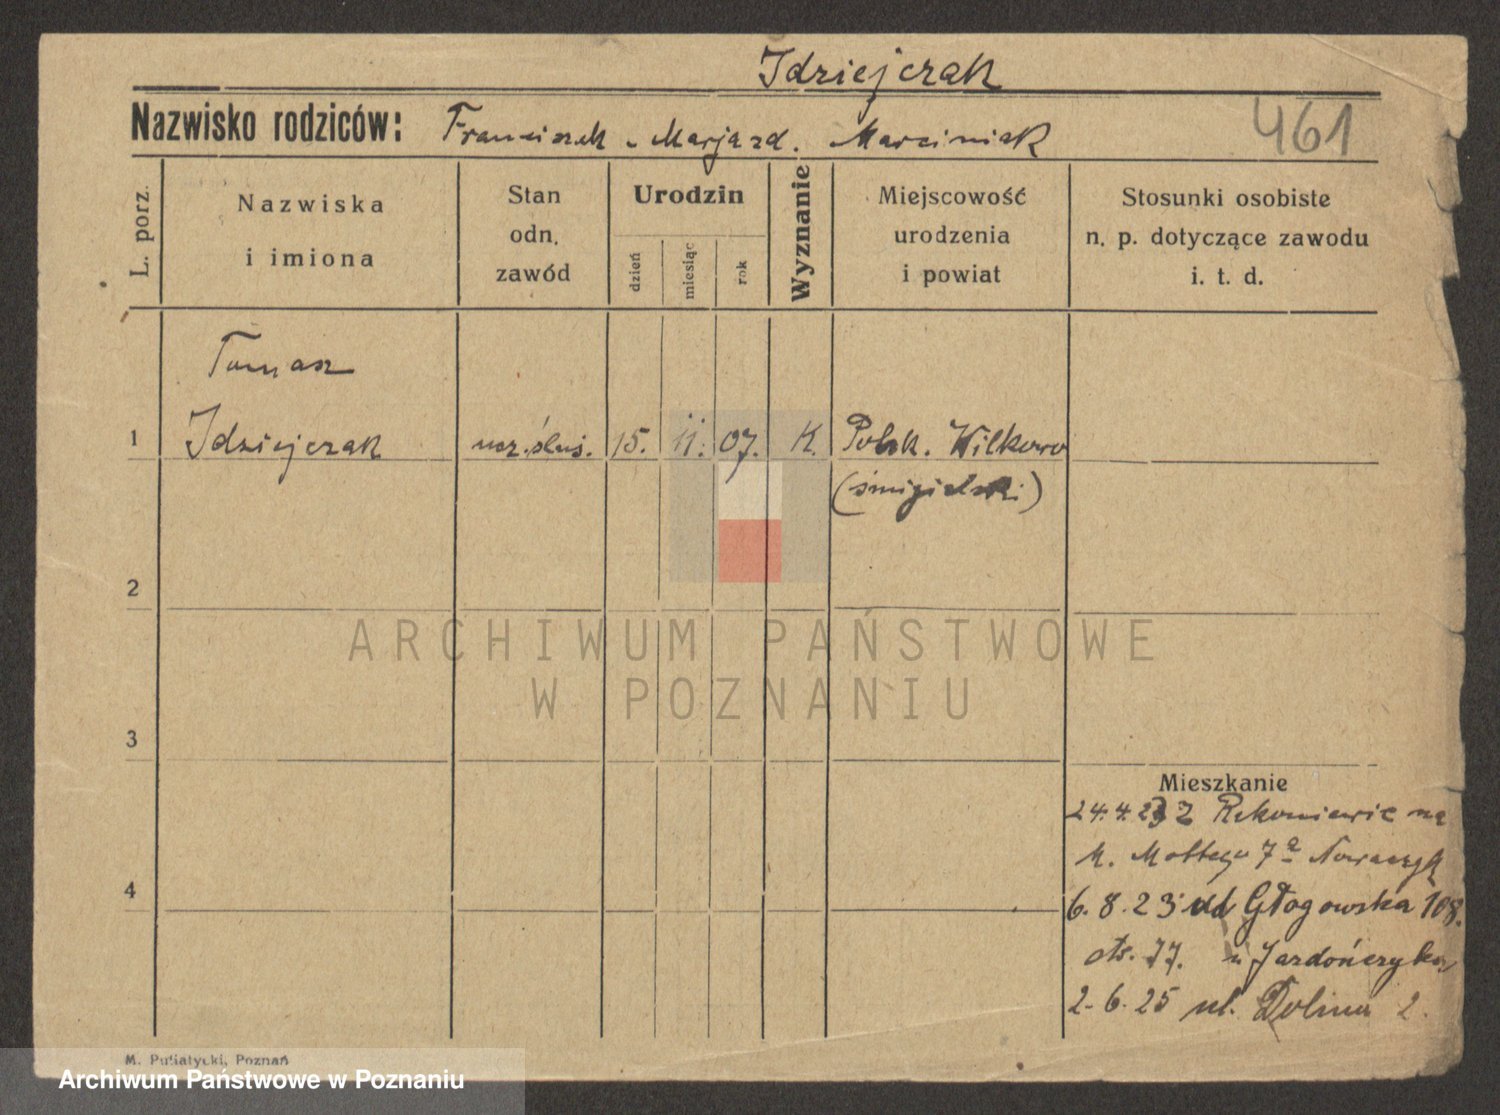 Idziejczak
Nazwisko rodziców: Franciszek - Marja zd. Marciniak
461
L. porz.
Nazwiska
i imiona
Stan
odn.
zawód
Urodzin
dzień
miesiąc
rok
Wyznanie
Miejscowość
urodzenia
i powiat
Stosunki osobiste
n. p. dotyczące zawodu
i. t. d.
Tomasz
1 Idziejczak ucz. ślus. 15. 11. 07. K. Polsk. Wilkowo
(śmigielski)
2
3
4
Mieszkanie
24.4.23 Z Rakoniewic na
M. Mottego 7a Nowaczyk
6.8.23 ul Głogowska 108.
otr. 77. u Jardończyka
2.6.25 ul. Dolina 2.
M. Putiatycki, Poznań
ARCHIWUM PAŃSTWOWE
W POZNANIU
Archiwum Państwowe w Poznaniu